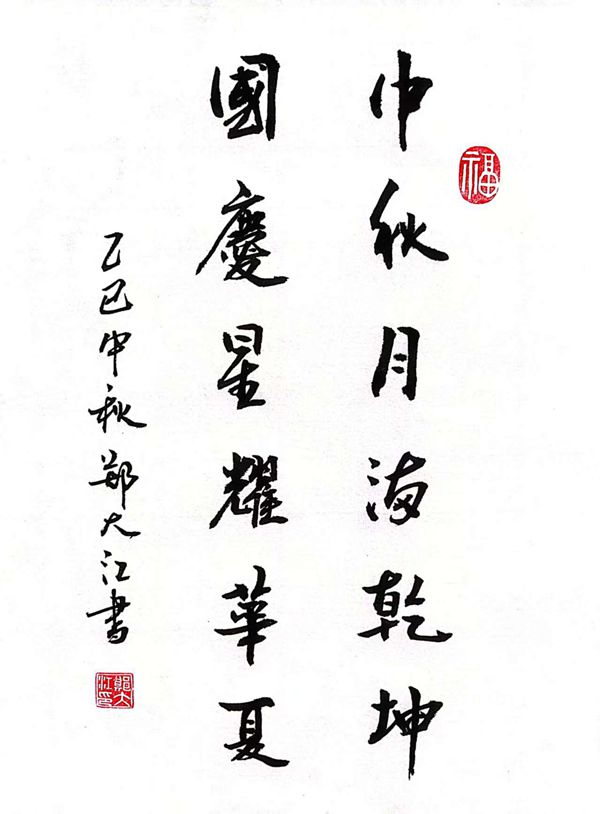 中秋月满乾坤
福
國慶星耀華夏
乙巳中秋鄭大江書
鄭大江印